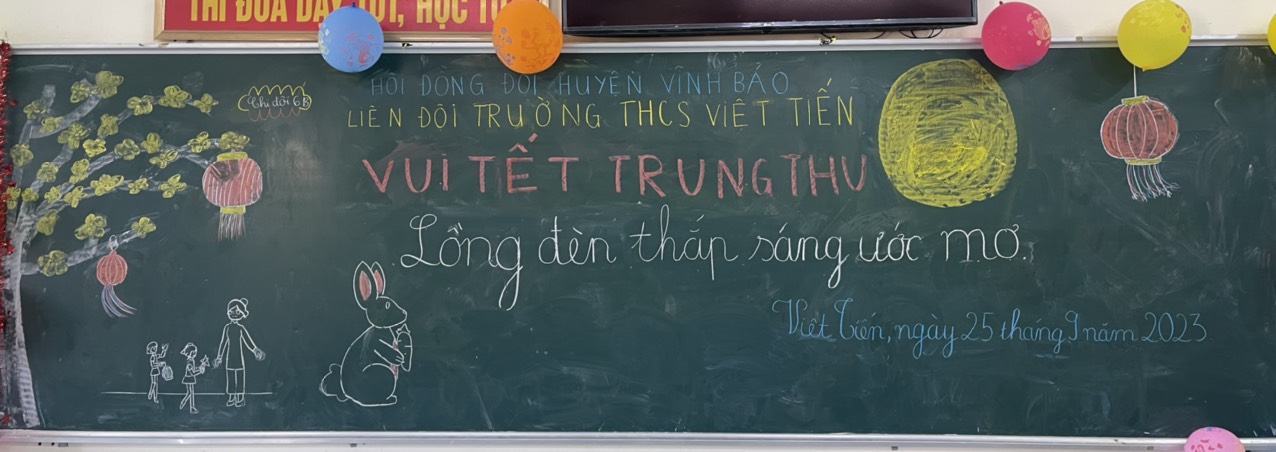 THI ĐUA DẠY TỐT, HỌC TỐT
Chi đội 6B
HỘI ĐỒNG ĐỘI HUYỆN VĨNH BẢO
LIÊN ĐỘI TRƯỜNG THCS VIỆT TIẾN
VUI TẾT TRUNG THU
Lồng đèn thắp sáng ước mơ.
Việt Tiến, ngày 25 tháng 9 năm 2023